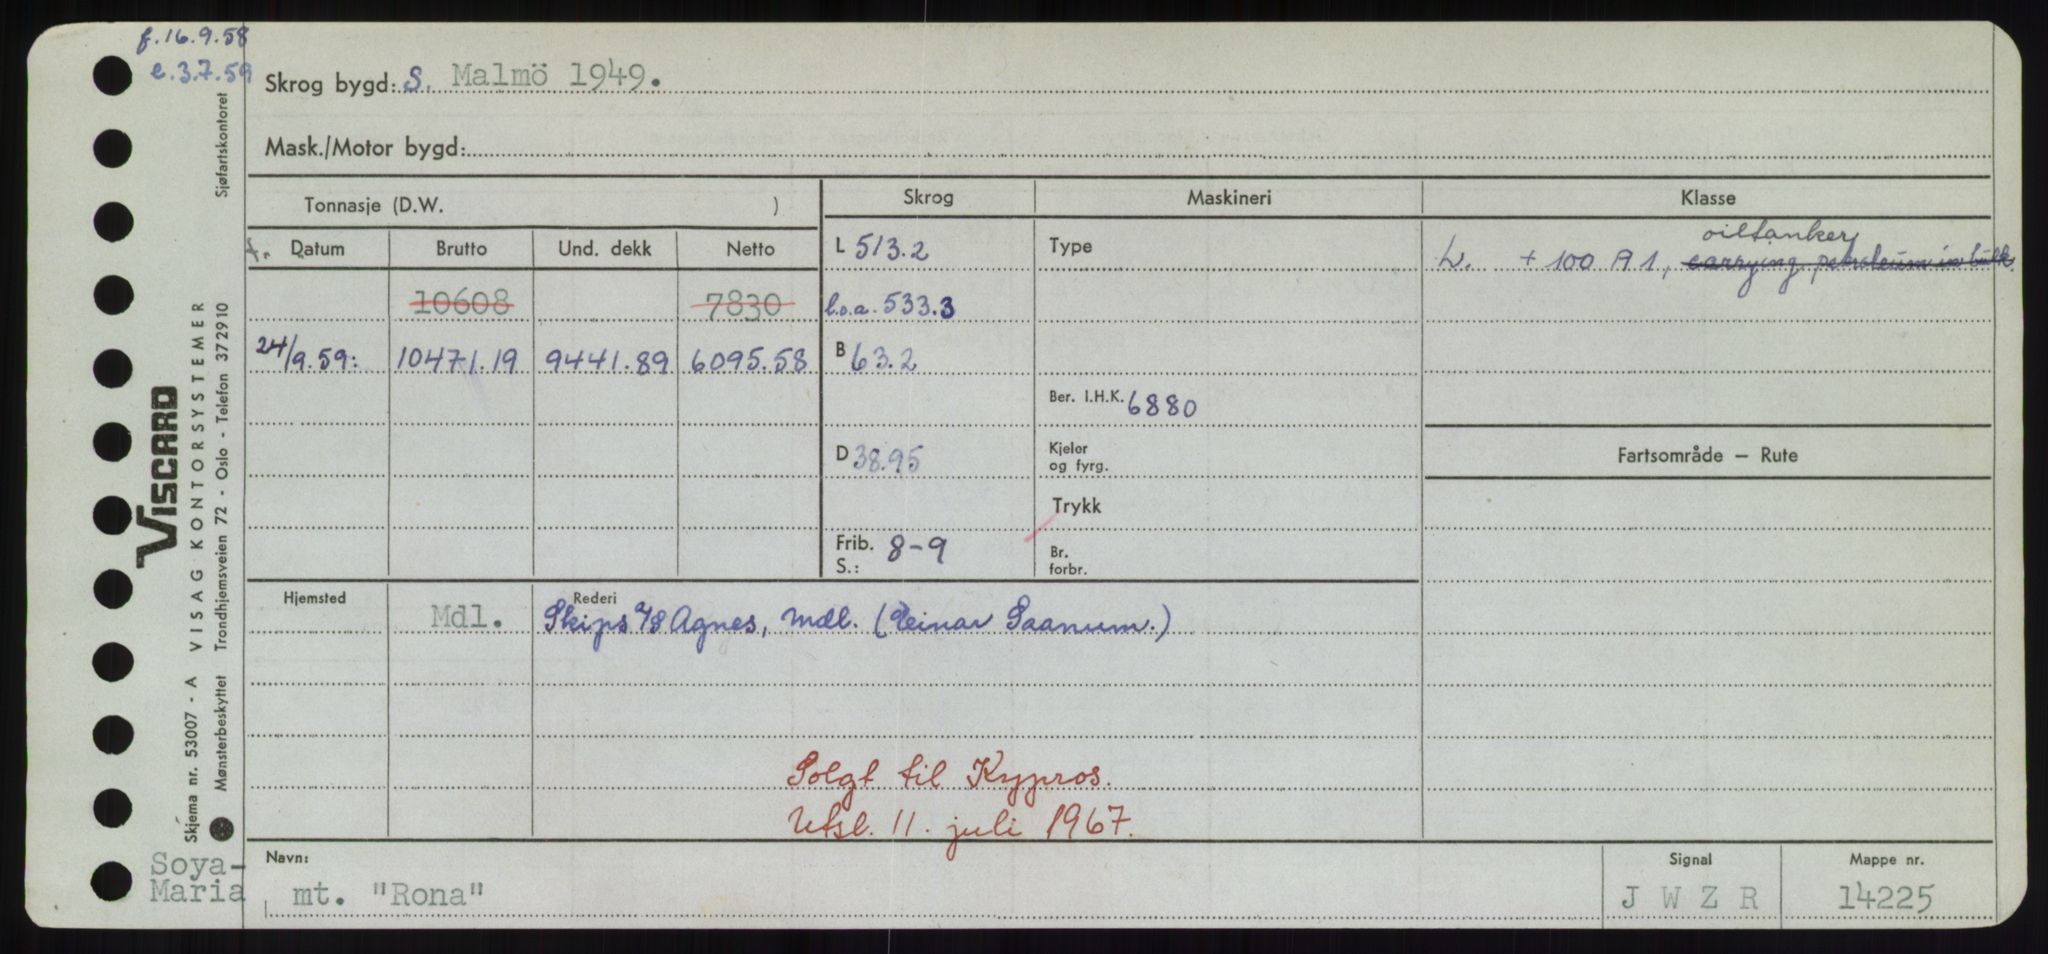 f. 16.9.58
e. 3.7.59
Skrog bygd: S. Malmö 1949.
Mask./Motor bygd:
Tonnasje (D.W. )
Skrog
Maskineri
Klasse
Datum Brutto Und. dekk Netto
L 513.2
Type
oiltanker
L. + 100 A 1, carrying petroleum in bulk.
10608 7830
l.o.a. 533.3
24/9.59: 10471.19 9441.89 6095.58
B 63.2
Ber. I.H.K. 6880
D 38.95
Kjeler
og fyrg.
Fartsområde – Rute
Trykk
Frib.
S.: 8-9
Br.
forbr.
Hjemsted Mdl.
Rederi
Skips A/S Agnes, Mdl. (Einar Saanum.)
Solgt til Kypros.
Utsl. 11. juli 1967.
Soya-
Maria
Navn:
mt. "Rona"
Signal
J W Z R
Mappe nr.
14225
VISCARD
Skjema nr. 53007 - A VISAG KONTORSYSTEMER
Mønsterbeskyttet Trondhjemsveien 72 - Oslo - Telefon 372910
Sjøfartskontoret